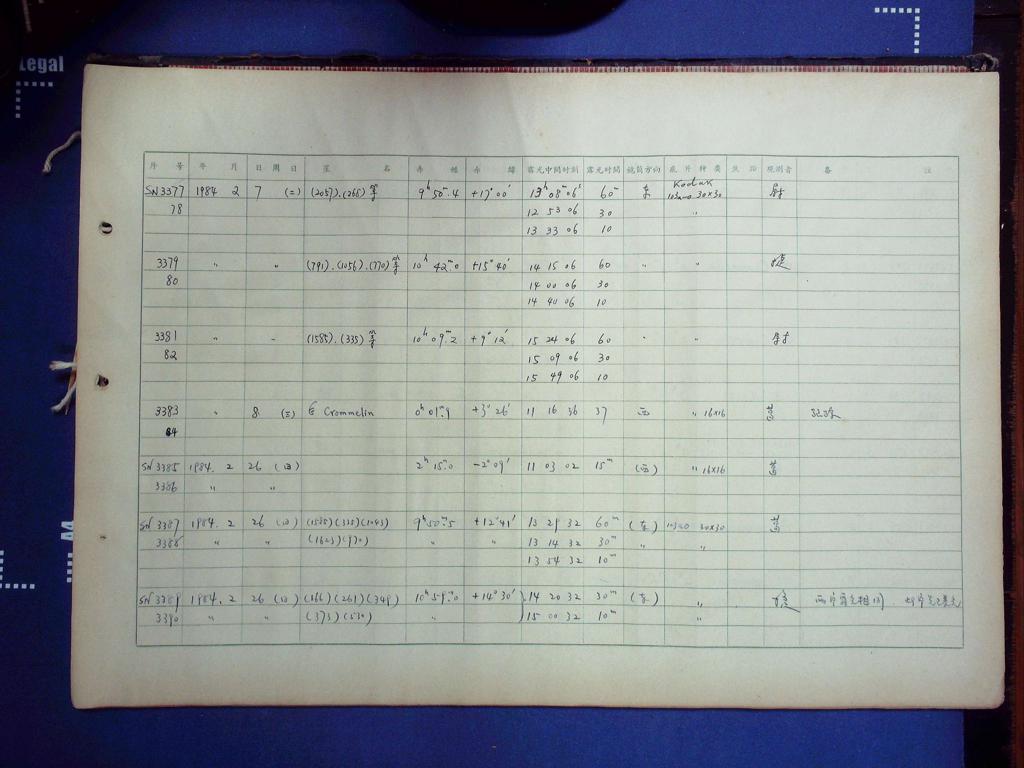 Legal
序 号 年 月 日 周 日 星 名 赤 经 赤 纬 露光中间时刻 露光时间 镜筒方向 底 片 种 类 观测者 备 注
SN3377 1984 2 7 (二) (2057).(265)等 9h 50m.4 +17°00′ 13h 08m 06s 60m 东 Kodak 103aO 30×30
78 12 53 06 30 〃
13 33 06 10
3379 〃 〃 (791).(1056).(770)等 10h 42m.0 +15°40′ 14 15 06 60 〃 〃
80 14 00 06 30
14 40 06 10
3381 〃 〃 (1585).(335)等 10h 09m.2 +9°12′ 15 24 06 60 〃 〃
82 15 09 06 30
15 49 06 10
3383 〃 8 (三) Crommelin 0h 01m.9 +3°26′ 11 16 36 37 西 〃 16×16
84
SN3385 1984. 2 26 (日) 2h 15m.0 -2°09′ 11 03 02 15m (西) 〃 16×16
3386 〃 〃
SN3387 1984. 2 26 (日) (1585)(335)(1043) 9h 50m.5 +12°41′ 13 29 32 60m (东) 103aO 30×30
3388 〃 〃 (1623)(970) 〃 〃 13 14 32 30m 〃 〃
13 54 32 10m
SN3389 1984. 2 26 (日) (166)(261)(349) 10h 59m.0 +14°30′ 14 20 32 30m (东) 〃
3390 〃 〃 (373)(530) 〃 15 00 32 10m 〃